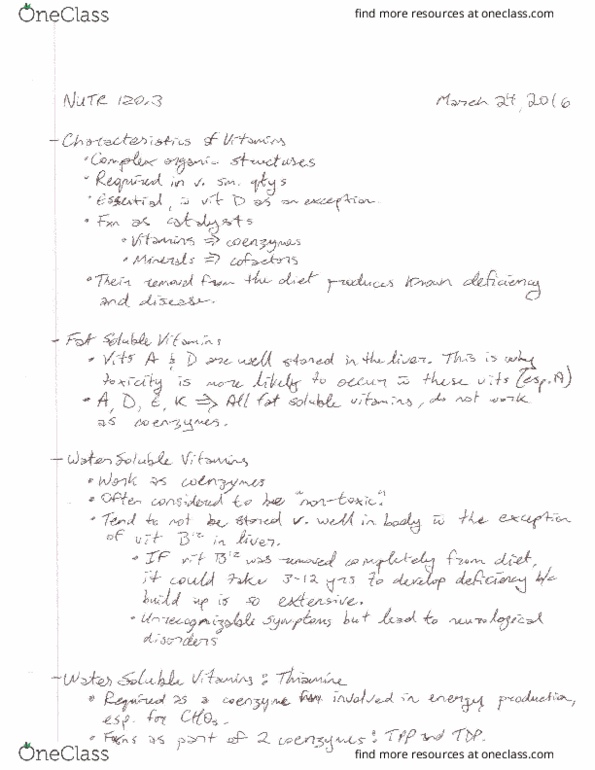 OneClass
find more resources at oneclass.com
NUTR 120.3
March 24, 2016
- Characteristics of Vitamins
• Complex organic structures
• Required in v. sm. qtys
• Essential, w̄ vit D as an exception.
• Fxn as catalysts
• Vitamins ⇒ coenzymes
• Minerals ⇒ cofactors
• Their removal from the diet produces known deficiency
and disease.
- Fat Soluble Vitamins
• Vits A & D are well stored in the liver. This is why
toxicity is more likely to occur w̄ these vits (esp. A)
• A, D, E, K ⇒ All fat soluble vitamins, do not work
as coenzymes.
- Water Soluble Vitamins
• Work as coenzymes
• Often considered to be "non-toxic".
• Tend to not be stored v. well in body w̄ the exception
of vit B12 in liver.
• If vit B12 was removed completely from diet,
it could take 3-12 yrs to develop deficiency b/c
build up is so extensive.
• Unrecognizable symptoms but lead to neurological
disorders
- Water Soluble Vitamins: Thiamine
• Required as a coenzyme involved in energy production,
esp. for CHOs.
• Fxns as part of 2 coenzymes: TPP and TDP.
OneClass
find more resources at oneclass.com